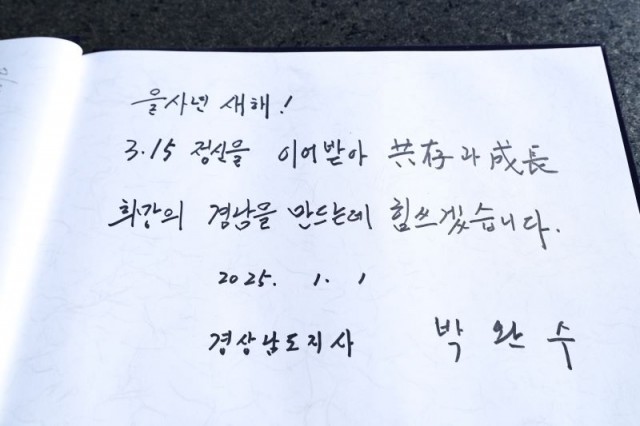 을사년 새해!
3.15 정신을 이어받아 共存과 成長
희망의 경남을 만드는데 힘쓰겠습니다.
2025. 1. 1
경상남도지사 박완수